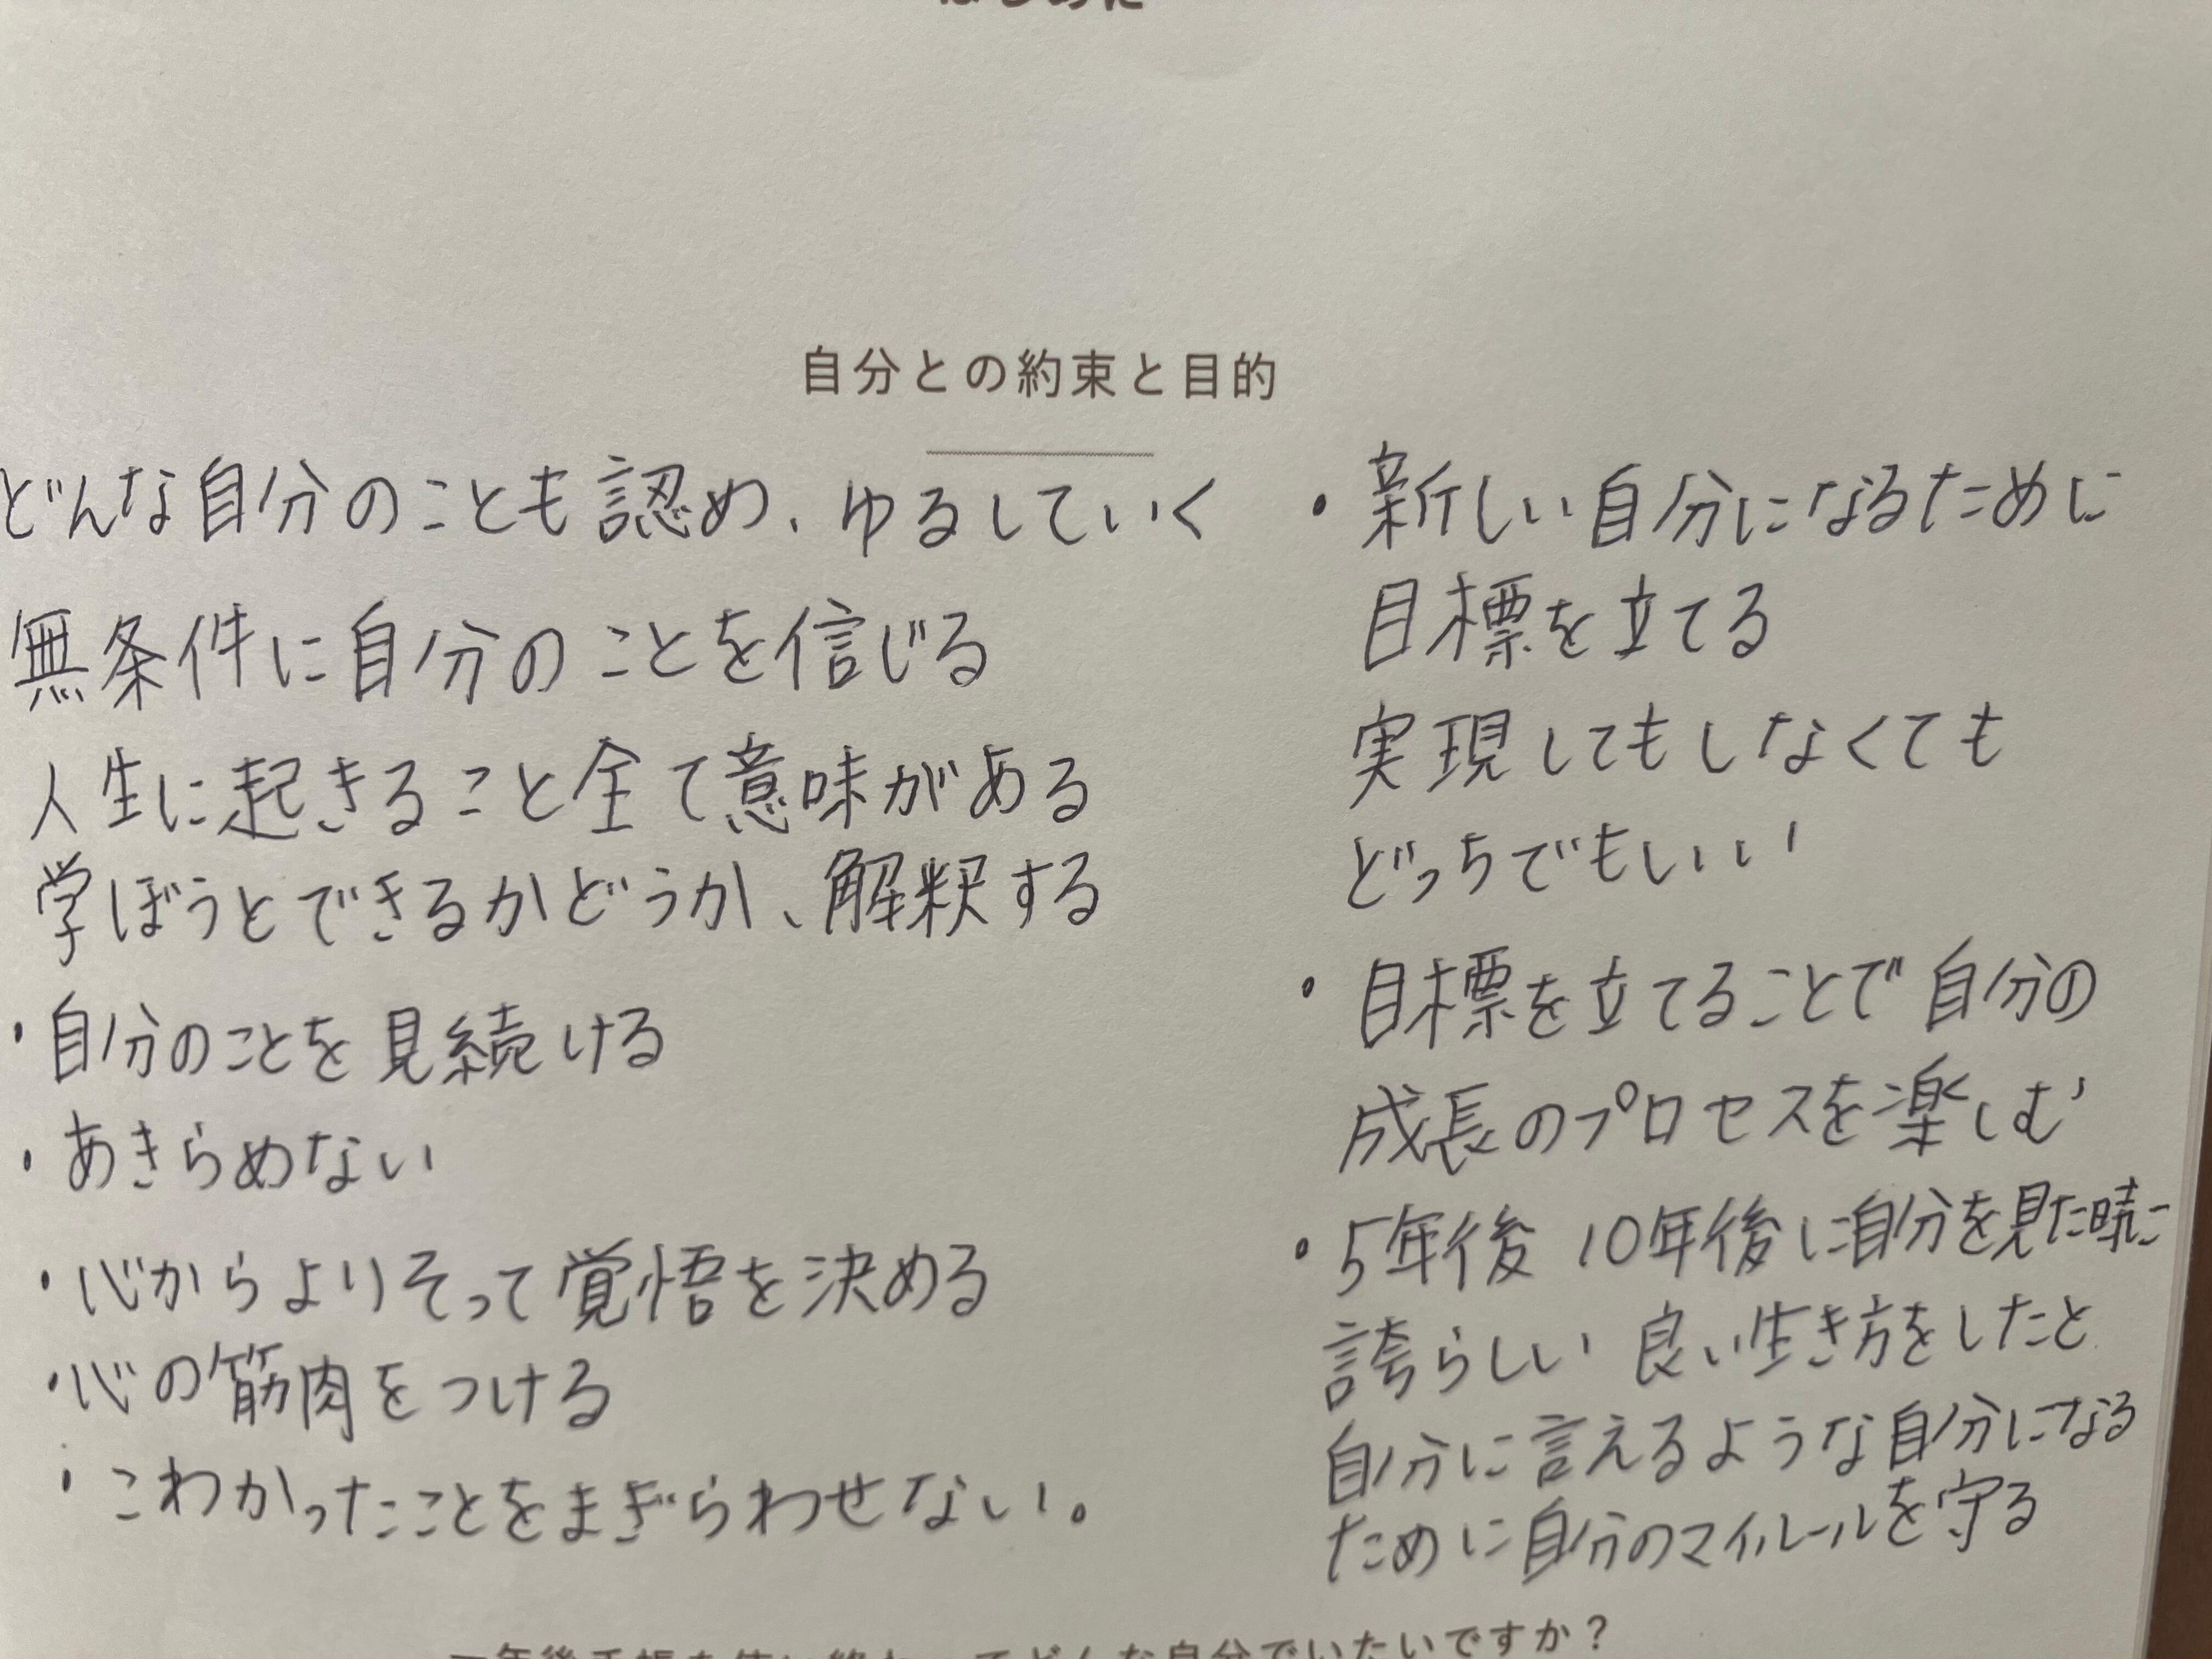 はじめに
自分との約束と目的
どんな自分のことも認め、ゆるしていく
無条件に自分のことを信じる
人生に起きること全て意味がある
学ぼうとできるかどうか、解釈する
・自分のことを見続ける
・あきらめない
・心からよりそって覚悟を決める
・心の筋肉をつける
・こわかったことをまぎらわせない。
・新しい自分になるために
目標を立てる
実現してもしなくても
どっちでもいい
・目標を立てることで自分の
成長のプロセスを楽しむ
・5年後 10年後に自分を見た時に
誇らしい 良い生き方をしたと
自分に言えるような自分になる
ために自分のマイルールを守る
一年後手帳を使い終わってどんな自分でいたいですか？